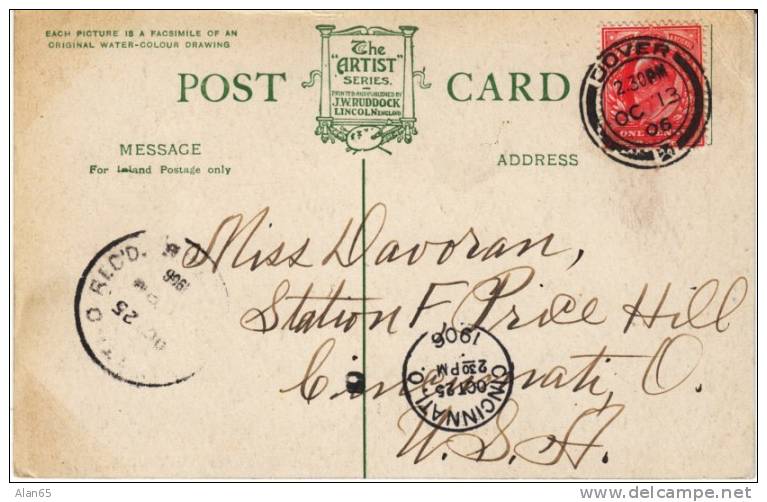 EACH PICTURE IS A FACSIMILE OF AN
ORIGINAL WATER-COLOUR DRAWING
POST
The
"ARTIST"
SERIES.
PRINTED AND PUBLISHED BY
J.W. RUDDOCK
LINCOLN ENGLAND
CARD
DOVER
2.30PM
OC 13
06
ONE PENNY
MESSAGE
For Inland Postage only
ADDRESS
Miss Davoran,
Station F Price Hill
Cincinnati, O.
U.S.A.
REC'D.
OCT
25
1906
CINCINNATI, O.
OCT 25
230 PM
1906
Ansi65
delcampe.net